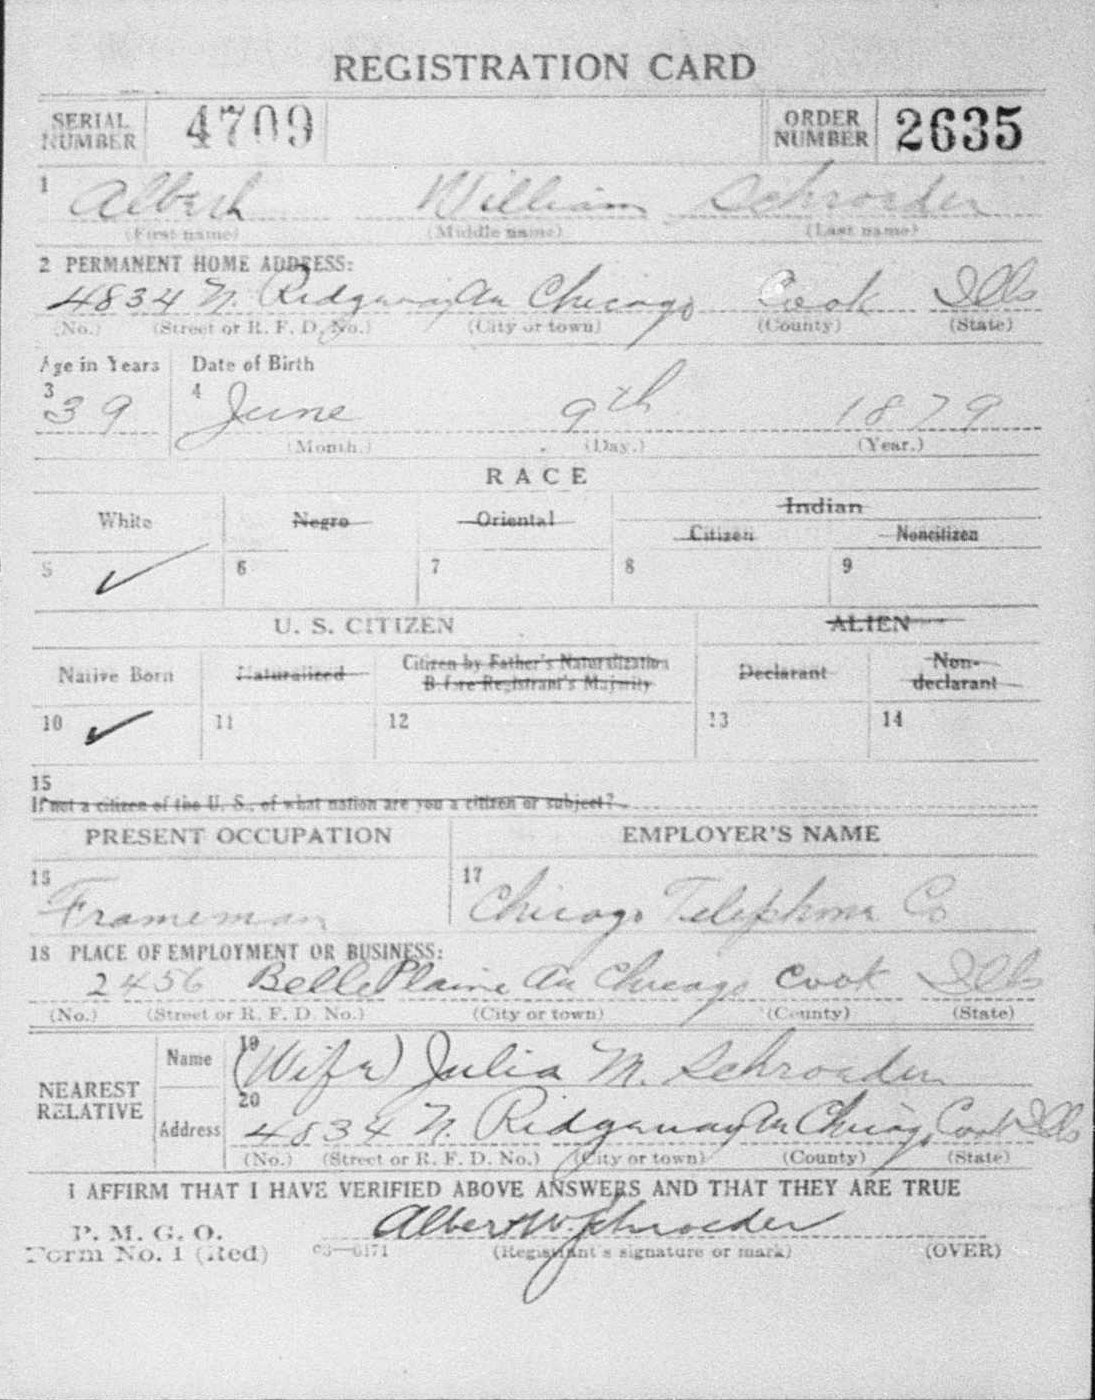 REGISTRATION CARD
SERIAL NUMBER 4709 ORDER NUMBER 2635
1 Albert William Schroeder
(First name) (Middle name) (Last name)
2 PERMANENT HOME ADDRESS:
4834 N. Ridgeway Av Chicago Cook Ills
(No.) (Street or R. F. D. No.) (City or town) (County) (State)
Age in Years Date of Birth
3 39 4 June 9th 1879
(Month.) (Day.) (Year.)
RACE
White Negro Oriental Indian
Citizen Noncitizen
5 ✓ 6 7 8 9
U. S. CITIZEN ALIEN
Native Born Naturalized Citizen by Father's Naturalization Before Registrant's Majority Declarant Non-declarant
10 ✓ 11 12 13 14
15
If not a citizen of the U. S., of what nation are you a citizen or subject?
PRESENT OCCUPATION EMPLOYER'S NAME
16 Frameman 17 Chicago Telephone Co
18 PLACE OF EMPLOYMENT OR BUSINESS:
2456 Belle Plaine Av Chicago Cook Ills
(No.) (Street or R. F. D. No.) (City or town) (County) (State)
NEAREST RELATIVE
Name 19 (Wife) Julia M. Schroeder
Address 20 4834 N. Ridgeway Av Chicago Cook Ills
(No.) (Street or R. F. D. No.) (City or town) (County) (State)
I AFFIRM THAT I HAVE VERIFIED ABOVE ANSWERS AND THAT THEY ARE TRUE
P. M. G. O.
Form No. 1 (Red) 03—6171 Albert W. Schroeder
(Registrant's signature or mark) (OVER)